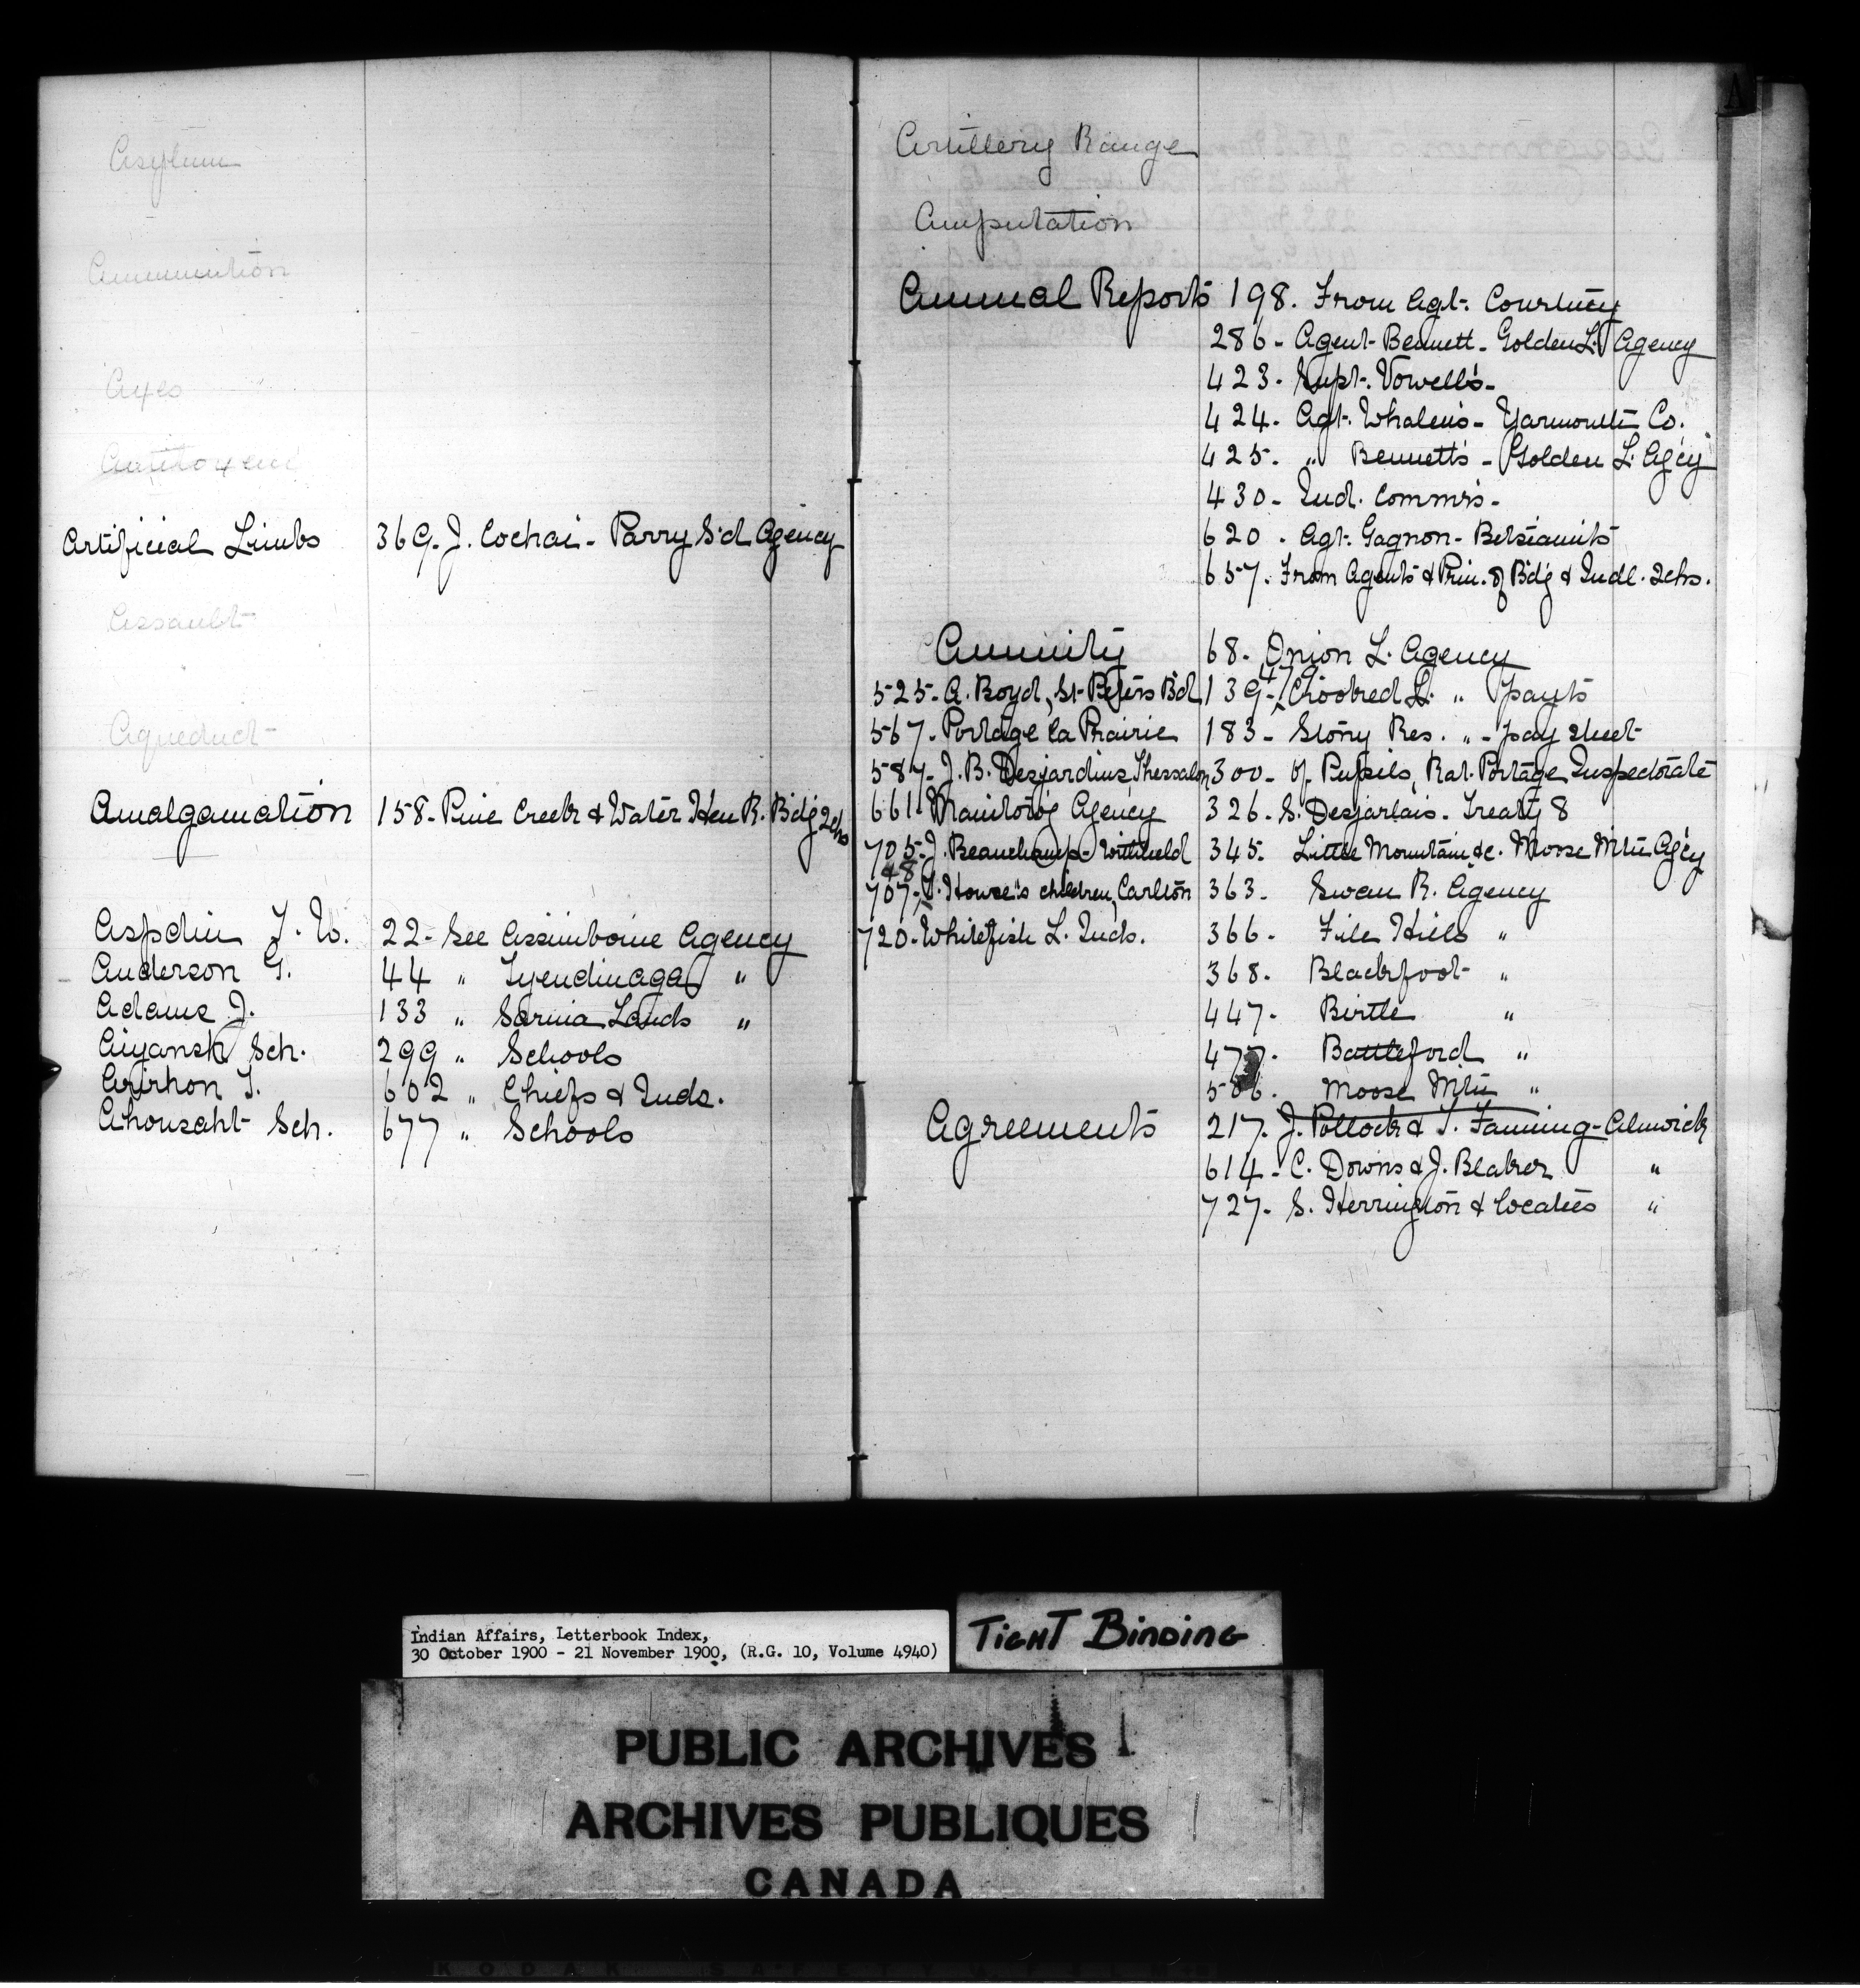 Asylum
Ammunition
Axes
Antitoxine
Artificial Limbs 369. J. Cochai - Parry S'd Agency
Assault
Aqueduct
Amalgamation 158 - Pine Creek & Water Hen R. Bd'g Schs
Aspdin T. W. 22 - See Assiniboine Agency
Anderson G. 44 " Tyendinaga "
Adams J. 133 " Sarnia Lands "
Aiyansh Sch. 299 " Schools
Arirhon T. 602 " Chiefs & Inds.
Ahousaht Sch. 677 " Schools
A
Artillery Range
Amputation
Annual Reports 198. From Agt. Courtney
286 - Agent Bennett - Golden L. Agency
423 - Supt. Vowell's -
424 - Agt. Whalen's - Yarmouth Co.
425. " Bennett's - Golden L. Ag'cy
430 - Ind. Commr's -
620 . Agt. Gagnon - Betsiamits
657. From Agents & Prin. of Bd'g & Indl. Schs.
Annuity 68 - Onion L. Agency
525 - A. Boyd, St. Peters B'd 139 - Crooked L. " pay'ts
567 - Portage la Prairie 183 - Stony Res. " - pay sheet
587 - J. B. Desjardins, Thessalon 300 - of Pupils, Rat Portage Inspectorate
661 - Manitow'g Agency 326 - S. Desjarlais - Treaty 8
705 - J. Beauchamp - withheld 345. Little Mountain &c. Moose Mtn Ag'cy
48
707 - J. House's children, Carlton 363. Swan R. Agency
720 - Whitefish L. Inds. 366 - File Hills "
368. Blackfoot "
447 - Birtle "
477. Battleford "
506. Moose Mtn "
Agreements 217. J. Pollock & T. Fanning - Alnwick
614 - C. Downs & J. Blaker "
727 - S. Herrington & locatees "
Indian Affairs, Letterbook Index,
30 October 1900 - 21 November 1900, (R.G. 10, Volume 4940)
TIGHT BINDING
PUBLIC ARCHIVES
ARCHIVES PUBLIQUES
CANADA
KODAK SAFETY FILM